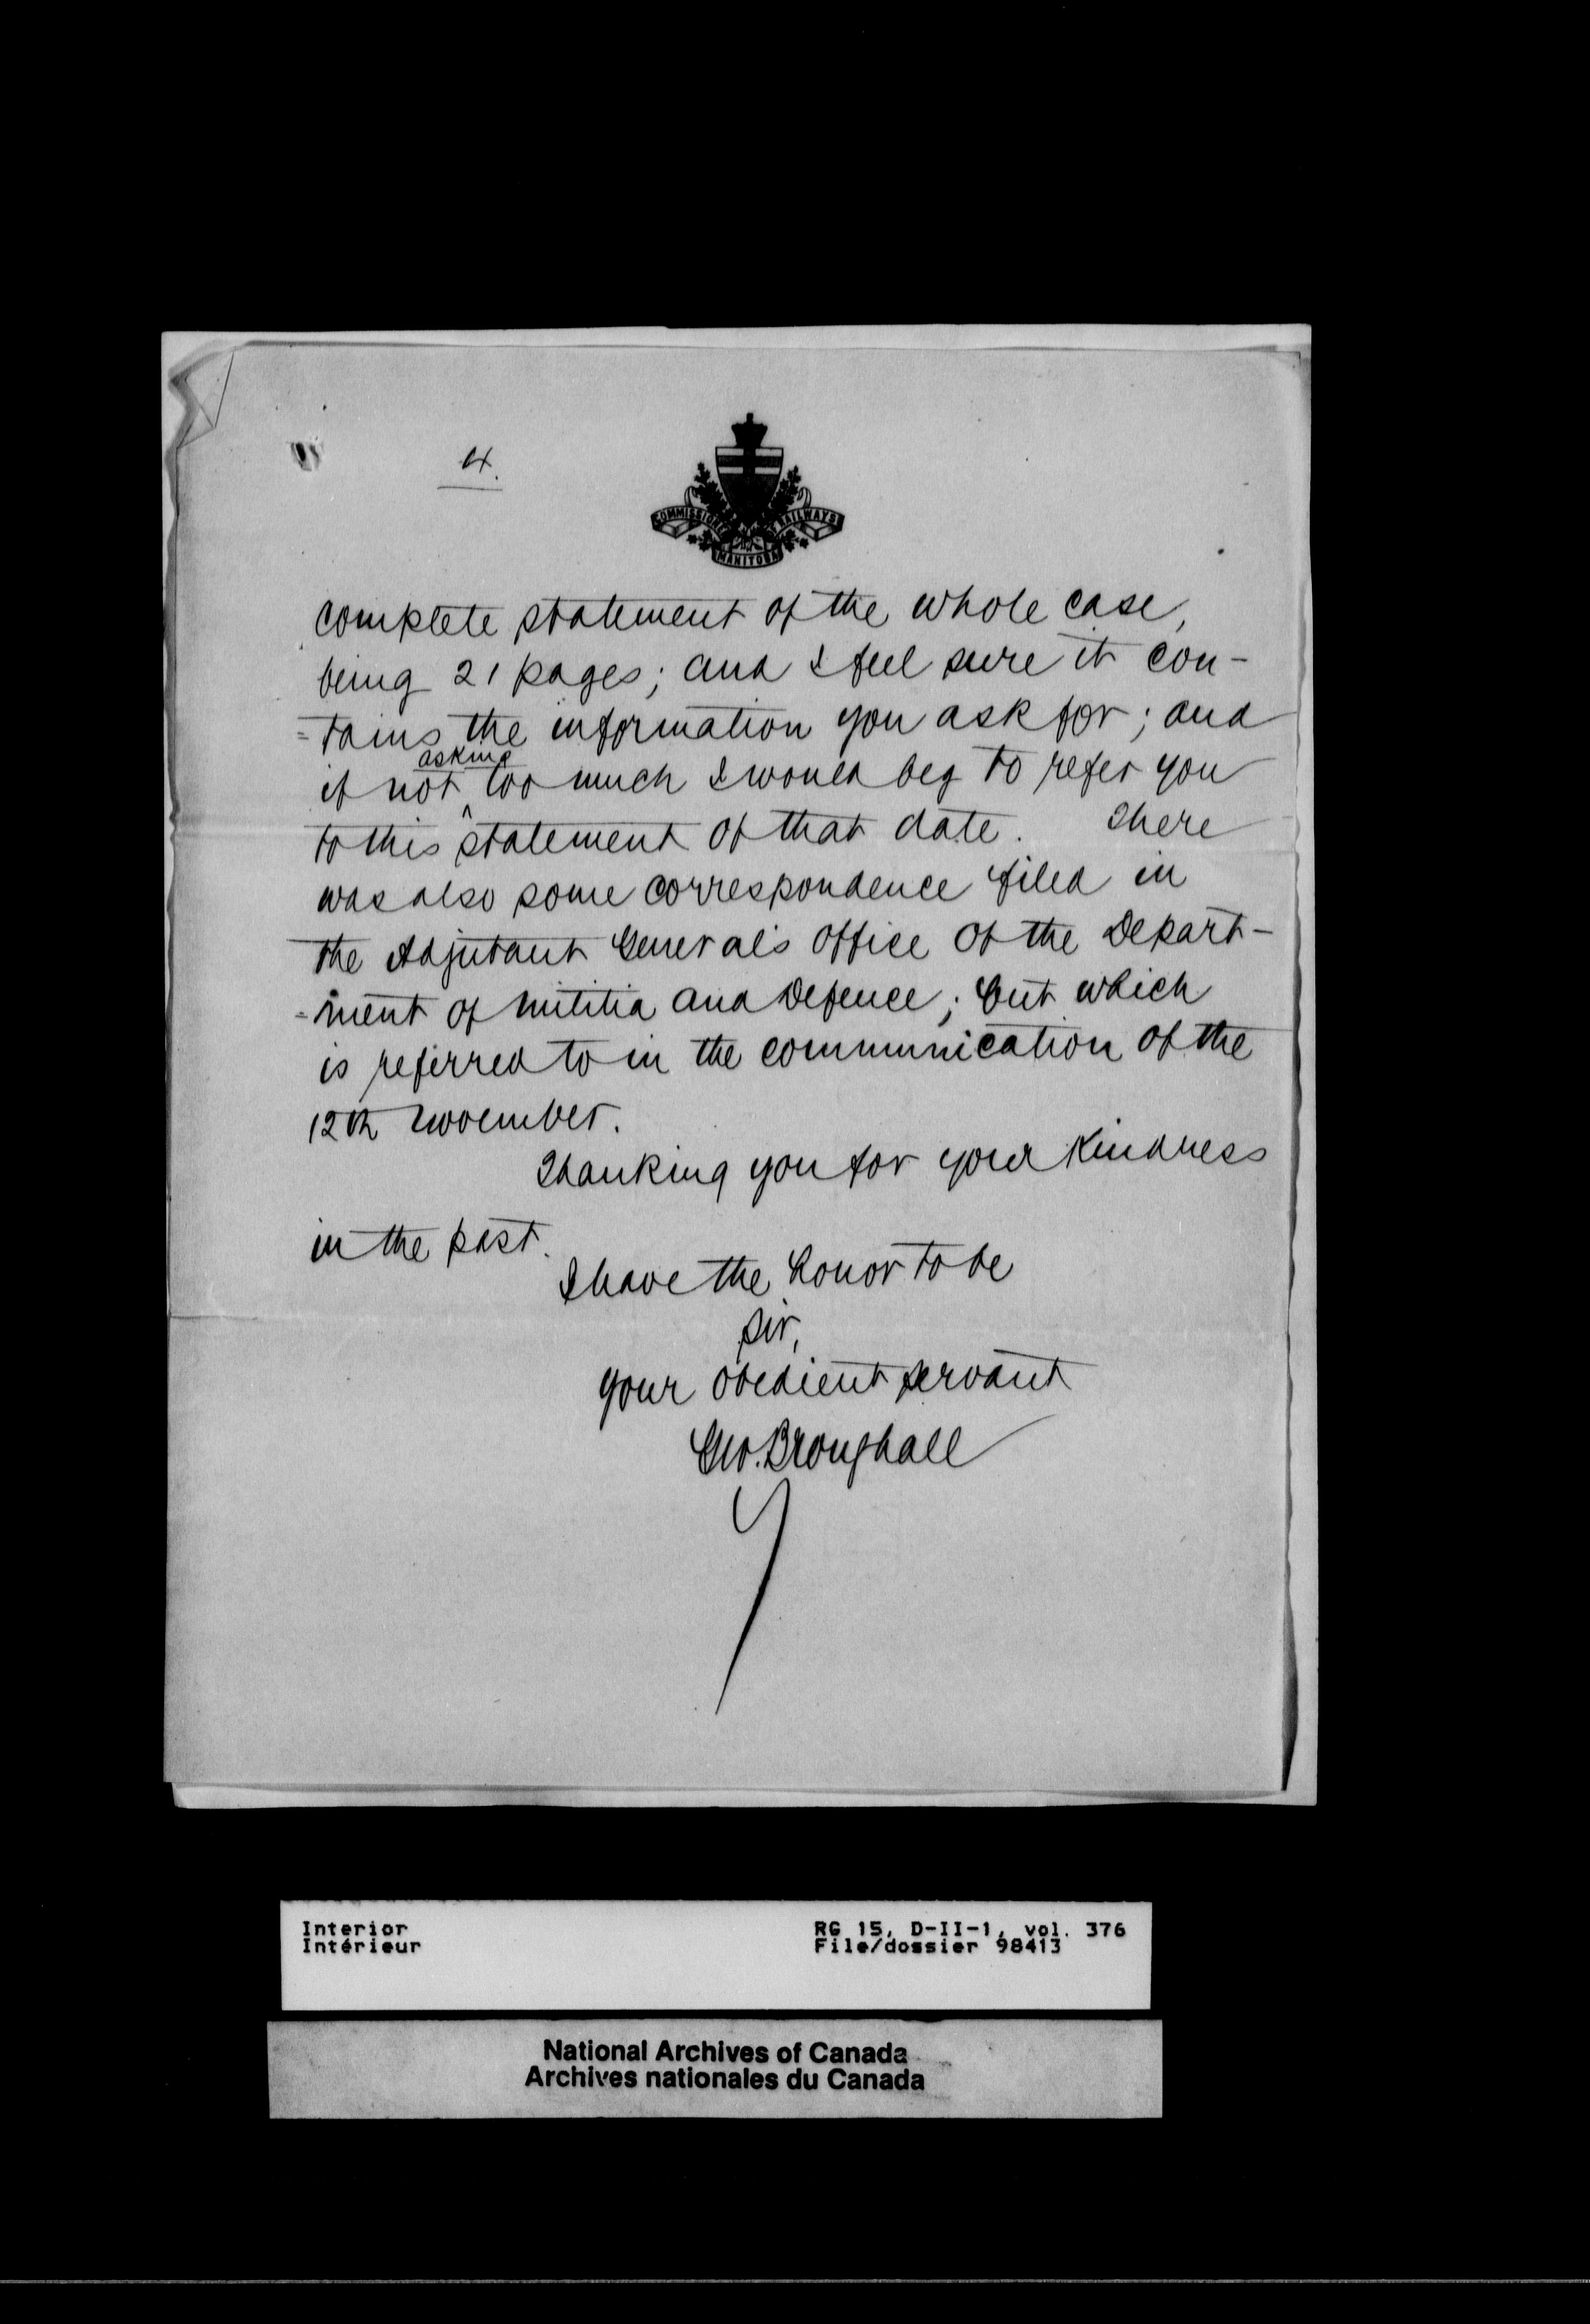 4.
COMMISSIONER RAILWAYS
MANITOBA
complete statement of the whole case,
being 21 pages; and I feel sure it con-
=tains the information you ask for; and
asking
if not ^ too much I would beg to refer you
to this statement of that date. There
was also some correspondence filed in
the Adjutant General's Office of the Depart-
=ment of Militia and Defence; but which
is referred to in the communication of the
12th November.
Thanking you for your kindness
in the past.
I have the honor to be
Sir,
Your obedient servant
Geo. Broughall
Interior RG 15, D-II-1, vol. 376
Intérieur File/dossier 98413
National Archives of Canada
Archives nationales du Canada